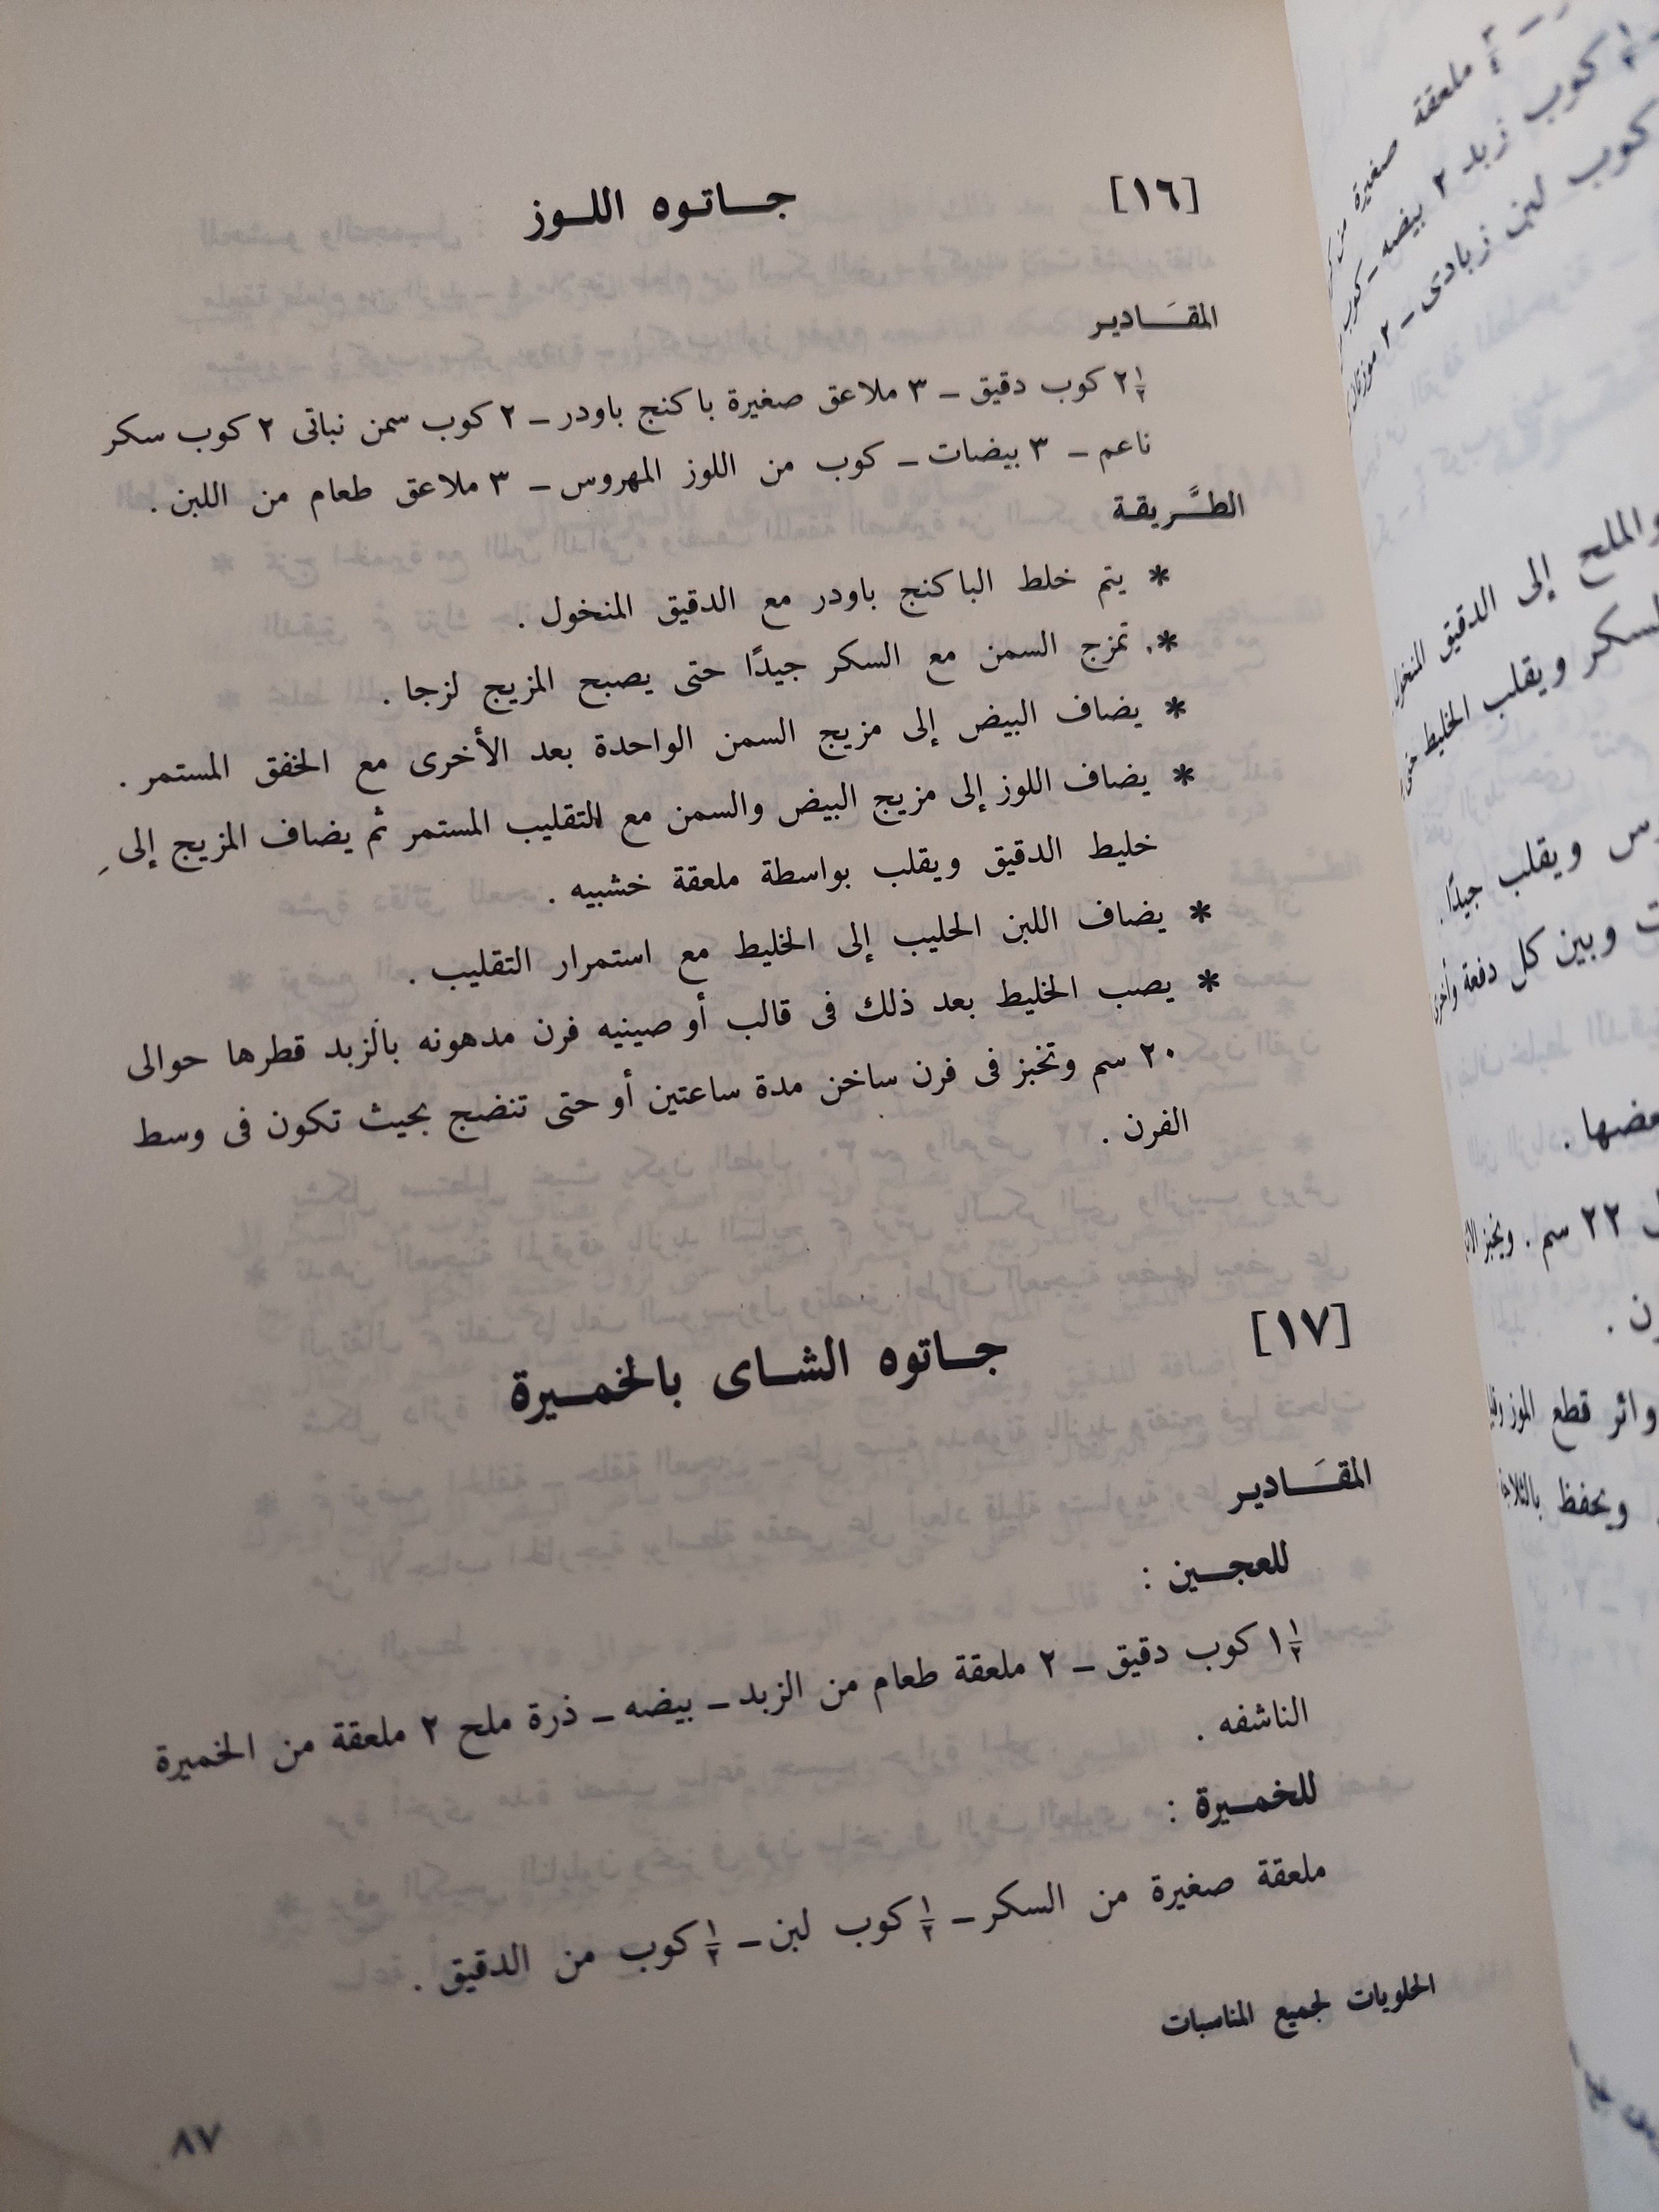 [١٦] جاتوه اللوز
المقَادير
٢ ١/٢ كوب دقيق ــ ٣ ملاعق صغيرة باكنج باودر ــ ٢ كوب سمن نباتى ٢ كوب سكر
ناعم ــ ٣ بيضات ــ كوب من اللوز المهروس ــ ٣ ملاعق طعام من اللبن .
الطَّريقة
* يتم خلط الباكنج باودر مع الدقيق المنخول .
* . تمزج السمن مع السكر جيدًا حتى يصبح المزيج لزجا .
* يضاف البيض إلى مزيج السمن الواحدة بعد الأخرى مع الخفق المستمر .
* يضاف اللوز إلى مزيج البيض والسمن مع التقليب المستمر ثم يضاف المزيج إلى
خليط الدقيق ويقلب بواسطة ملعقة خشبيه .
* يضاف اللبن الحليب إلى الخليط مع استمرار التقليب .
* يصب الخليط بعد ذلك فى قالب أو صينيه فرن مدهونه بالزبد قطرها حوالى
٢٠ سم وتخبز فى فرن ساخن مدة ساعتين أو حتى تنضج بحيث تكون فى وسط
الفرن .
[١٧] جاتوه الشاى بالخميرة
المقَادير
للعجين :
١ ١/٢ كوب دقيق ــ ٢ ملعقة طعام من الزبد ــ بيضه ــ ذرة ملح ٢ ملعقة من الخميرة
الناشفه .
للخميرة :
ملعقة صغيرة من السكر ــ ١/٢ كوب لبن ــ ١/٢ كوب من الدقيق .
الحلويات لجميع المناسبات
٨٧
ــ ٣/٤ ملعقة صغيرة من
كوب زبد ٢ بيضه ــ كوب
كوب لبن زبادى ــ ٢ موزتان
والملح إلى الدقيق المنخول
السكر ويقلب الخليط حتى
ويقلب جيدًا .
وبين كل دفعة وأخرى
بعضها .
٢٢ سم . ويخبز
قطع الموز
ويحفظ بالثلاجة